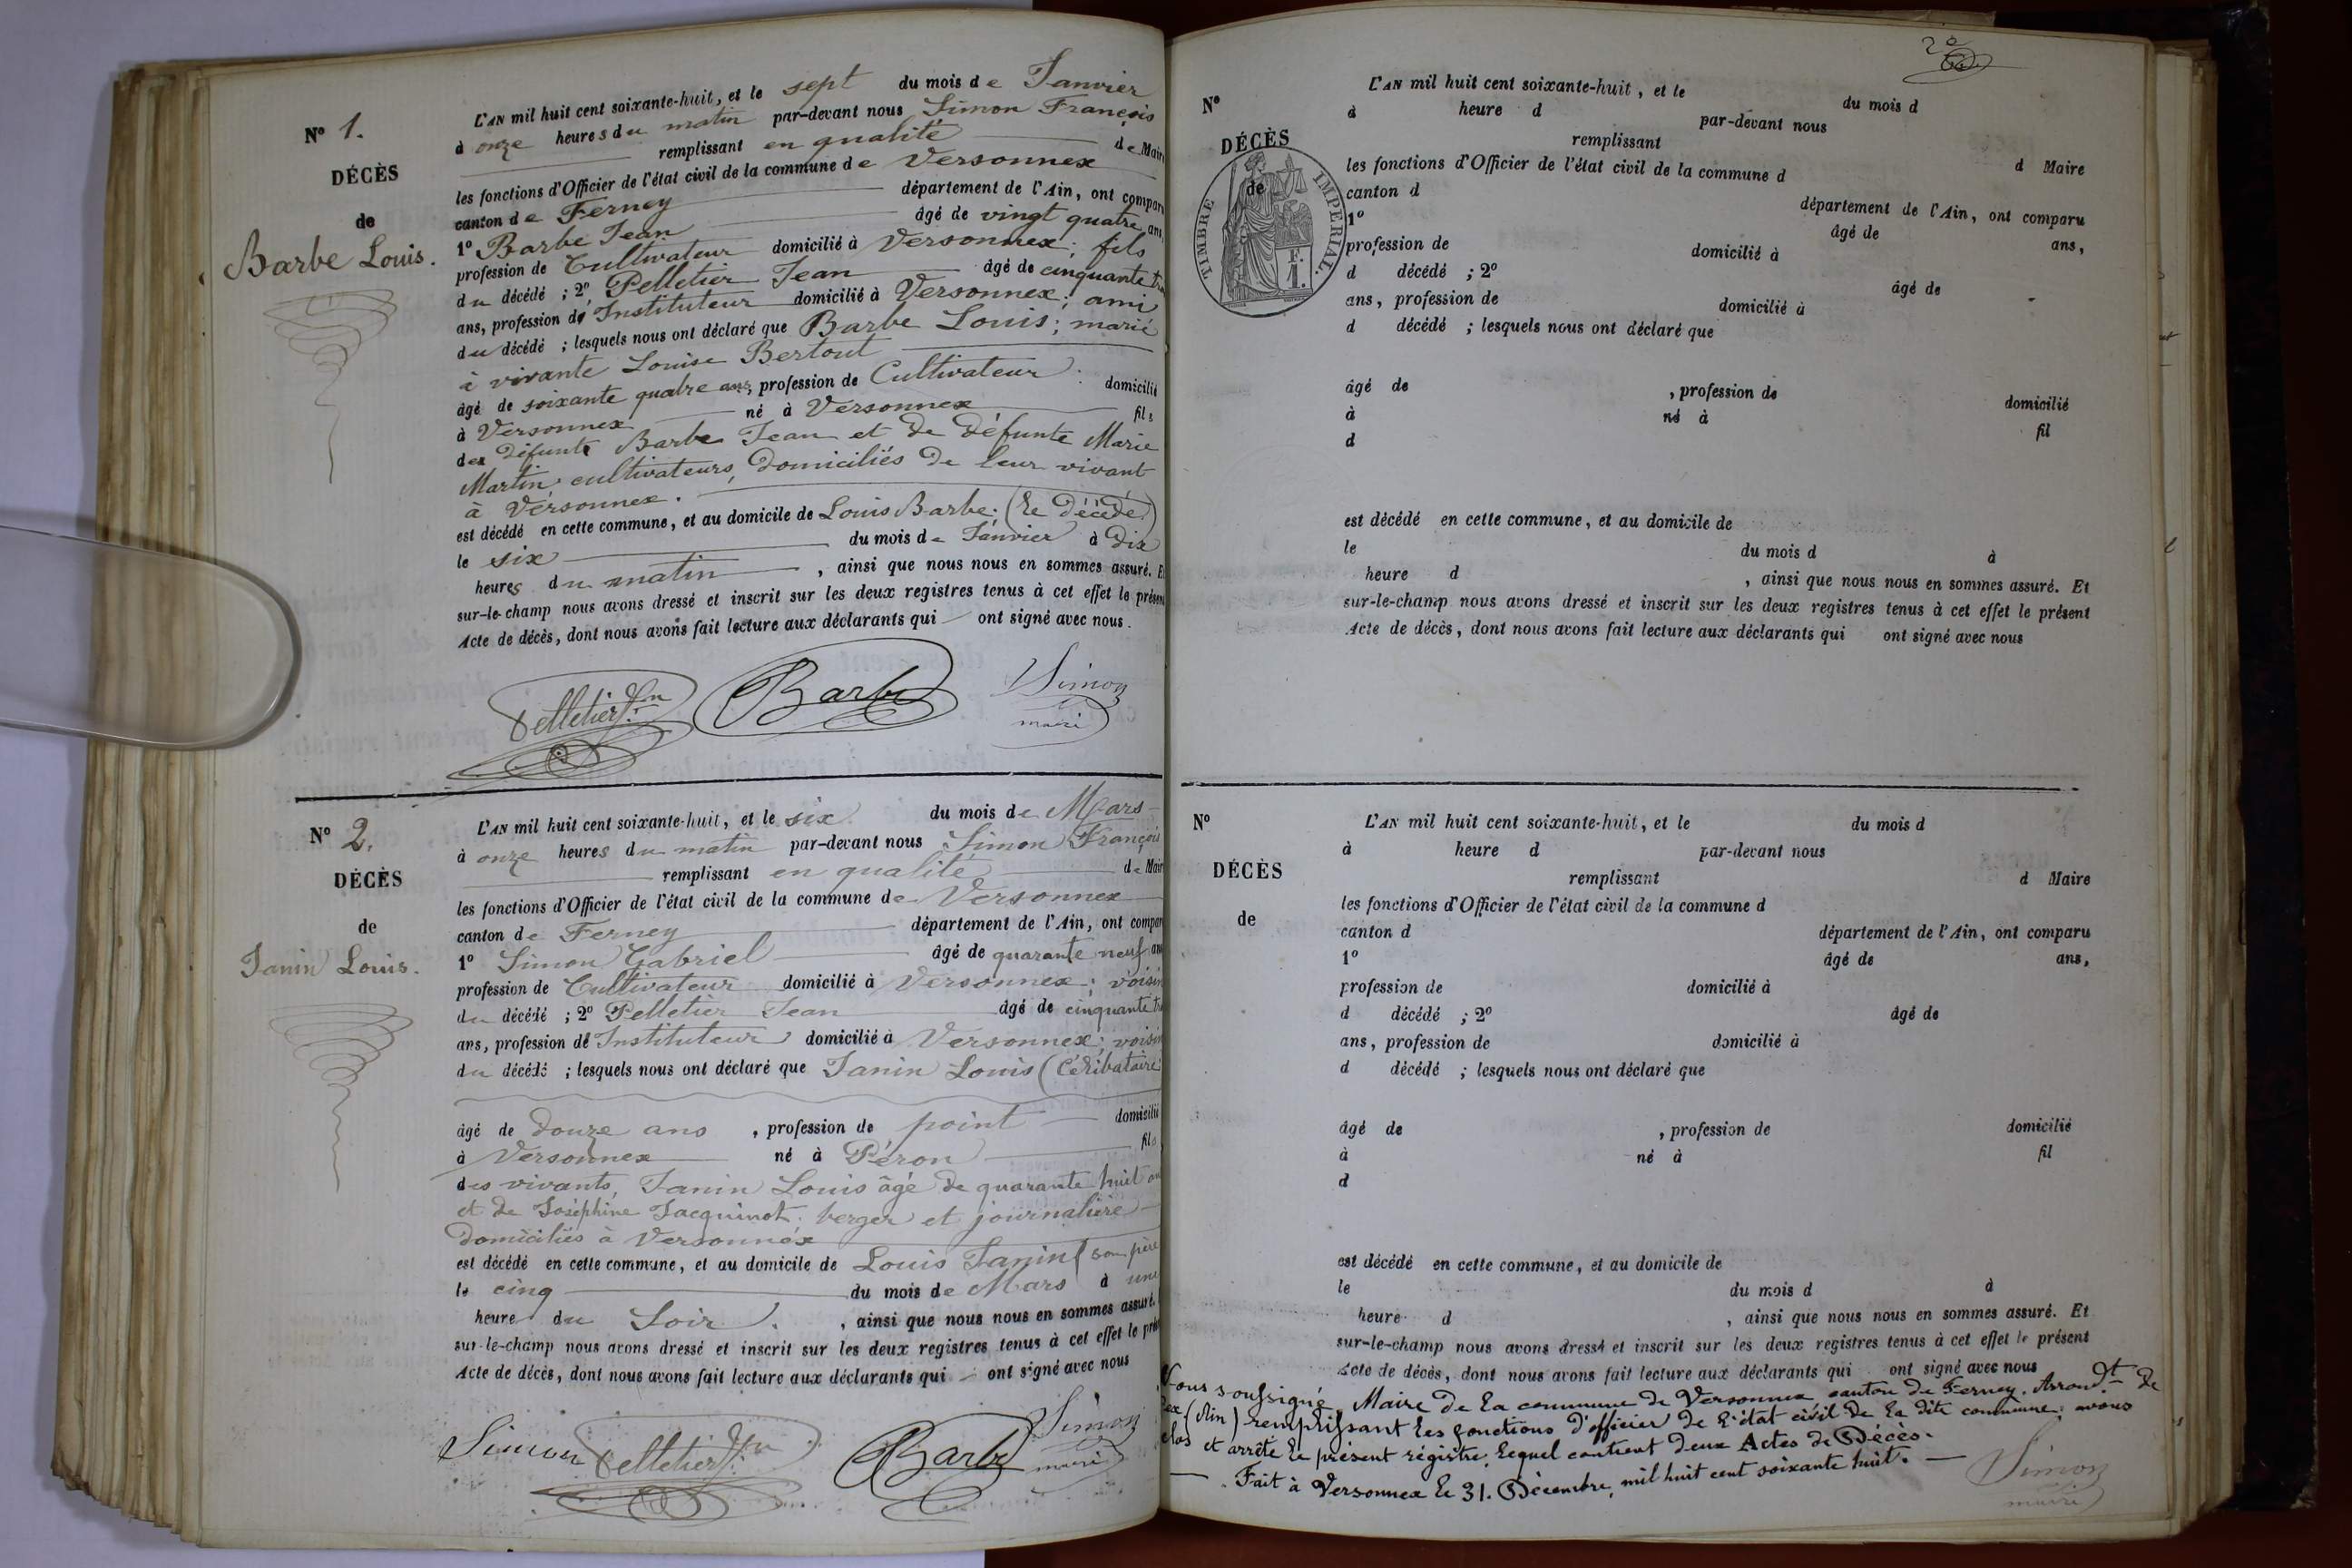 N° 1.
DÉCÈS
de
Barbe Louis.
L'AN mil huit cent soixante-huit, et le sept du mois de Janvier
à onze heures du matin par-devant nous Simon François
remplissant en qualité de Maire
les fonctions d'Officier de l'état civil de la commune de Versonnex
canton de Ferney département de l'Ain, ont comparu
1° Barbe Jean âgé de vingt quatre ans,
profession de Cultivateur domicilié à Versonnex; fils
du décédé ; 2° Pelletier Jean âgé de cinquante
ans, profession de Instituteur domicilié à Versonnex; ami
du décédé ; lesquels nous ont déclaré que Barbe Louis; marié
à vivante Louise Bertout
âgé de soixante quatre ans, profession de Cultivateur : domicilié
à Versonnex né à Versonnex fils
des défunts Barbe Jean et de défunte Marie
Martin cultivateurs, domiciliés de leur vivant
à Versonnex.
est décédé en cette commune, et au domicile de Louis Barbe. (le décédé)
le six du mois de Janvier à dix
heures du matin , ainsi que nous nous en sommes assuré. Et
sur-le-champ nous avons dressé et inscrit sur les deux registres tenus à cet effet le présent
Acte de décès, dont nous avons fait lecture aux déclarants qui ont signé avec nous.
Pelletier Jn Barbe Simon
maire
N° 2.
DÉCÈS
de
Janin Louis.
L'AN mil huit cent soixante-huit, et le six du mois de Mars
à onze heures du matin par-devant nous Simon François
remplissant en qualité de Maire
les fonctions d'Officier de l'état civil de la commune de Versonnex
canton de Ferney département de l'Ain, ont comparu
1° Simon Gabriel âgé de quarante neuf ans
profession de Cultivateur domicilié à Versonnex; voisin
du décédé ; 2° Pelletier Jean âgé de cinquante
ans, profession de Instituteur domicilié à Versonnex; voisin
du décédé ; lesquels nous ont déclaré que Janin Louis (Célibataire
âgé de douze ans , profession de point domicilié
à Versonnex né à Péron fils
des vivants, Janin Louis âgé de quarante huit ans
et de Joséphine Jacquinot. berger et journalière
domiciliés à Versonnex
est décédé en cette commune, et au domicile de Louis Janin (son père
le cinq du mois de Mars à une
heure du Soir. , ainsi que nous nous en sommes assuré.
sur-le-champ nous avons dressé et inscrit sur les deux registres tenus à cet effet le présent
Acte de décès, dont nous avons fait lecture aux déclarants qui ont signé avec nous
Simon Pelletier Jn Barbe Simon
maire
N°
DÉCÈS
de
TIMBRE IMPÉRIAL.
F.
1.
L'AN mil huit cent soixante-huit, et le du mois d
à heure d par-devant nous
remplissant d Maire
les fonctions d'Officier de l'état civil de la commune d
canton d département de l'Ain, ont comparu
1° âgé de ans,
profession de domicilié à
d décédé ; 2° âgé de
ans, profession de domicilié à
d décédé ; lesquels nous ont déclaré que
âgé de , profession de domicilié
à né à fil
d
est décédé en cette commune, et au domicile de
le du mois d à
heure d , ainsi que nous nous en sommes assuré. Et
sur-le-champ nous avons dressé et inscrit sur les deux registres tenus à cet effet le présent
Acte de décès, dont nous avons fait lecture aux déclarants qui ont signé avec nous
N°
DÉCÈS
de
L'AN mil huit cent soixante-huit, et le du mois d
à heure d par-devant nous
remplissant d Maire
les fonctions d'Officier de l'état civil de la commune d
canton d département de l'Ain, ont comparu
1° âgé de ans,
profession de domicilié à
d décédé ; 2° âgé de
ans, profession de domicilié à
d décédé ; lesquels nous ont déclaré que
âgé de , profession de domicilié
à né à fil
d
est décédé en cette commune, et au domicile de
le du mois d à
heure d , ainsi que nous nous en sommes assuré. Et
sur-le-champ nous avons dressé et inscrit sur les deux registres tenus à cet effet le présent
Acte de décès, dont nous avons fait lecture aux déclarants qui ont signé avec nous
Nous soussigné, Maire de la commune de Versonnex canton de Ferney. Arrondt de
Gex (Ain) remplissant les fonctions d'officier de l'état civil de la dite commune; avons
clos et arrêté le présent régistre, lequel contient deux Actes de Décès.
Fait à Versonnex le 31. Décembre, mil huit cent soixante huit.
Simon
maire